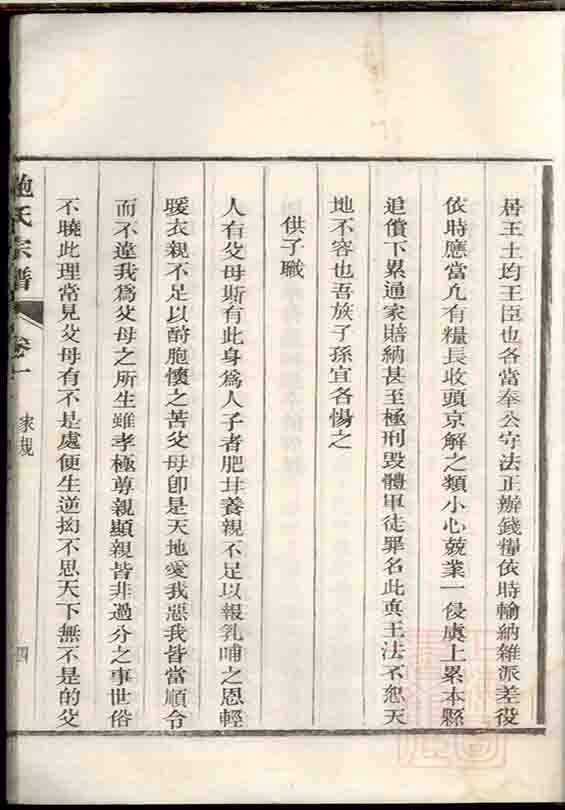 居王土均王臣也各當奉公守法正辦錢糧依時輸納雜派差役
依時應當凢有糧長收頭京解之類小心兢業一侵虞上累本縣
追償下累通家賠納甚至極刑毀體軍徒罪名此真王法不恕天
地不容也吾族子孫宜各惕之
供子職
人有父母斯有此身爲人子者肥甘養親不足以報乳哺之恩輕
暖衣親不足以酧胞懷之苦父母卽是天地愛我惡我皆當順令
而不違我爲父母之所生雖孝極尊親顯親皆非過分之事世俗
不曉此理常見父母有不是處便生逆拗不思天下無不是的父
鮑氏宗譜
卷一
家規
四